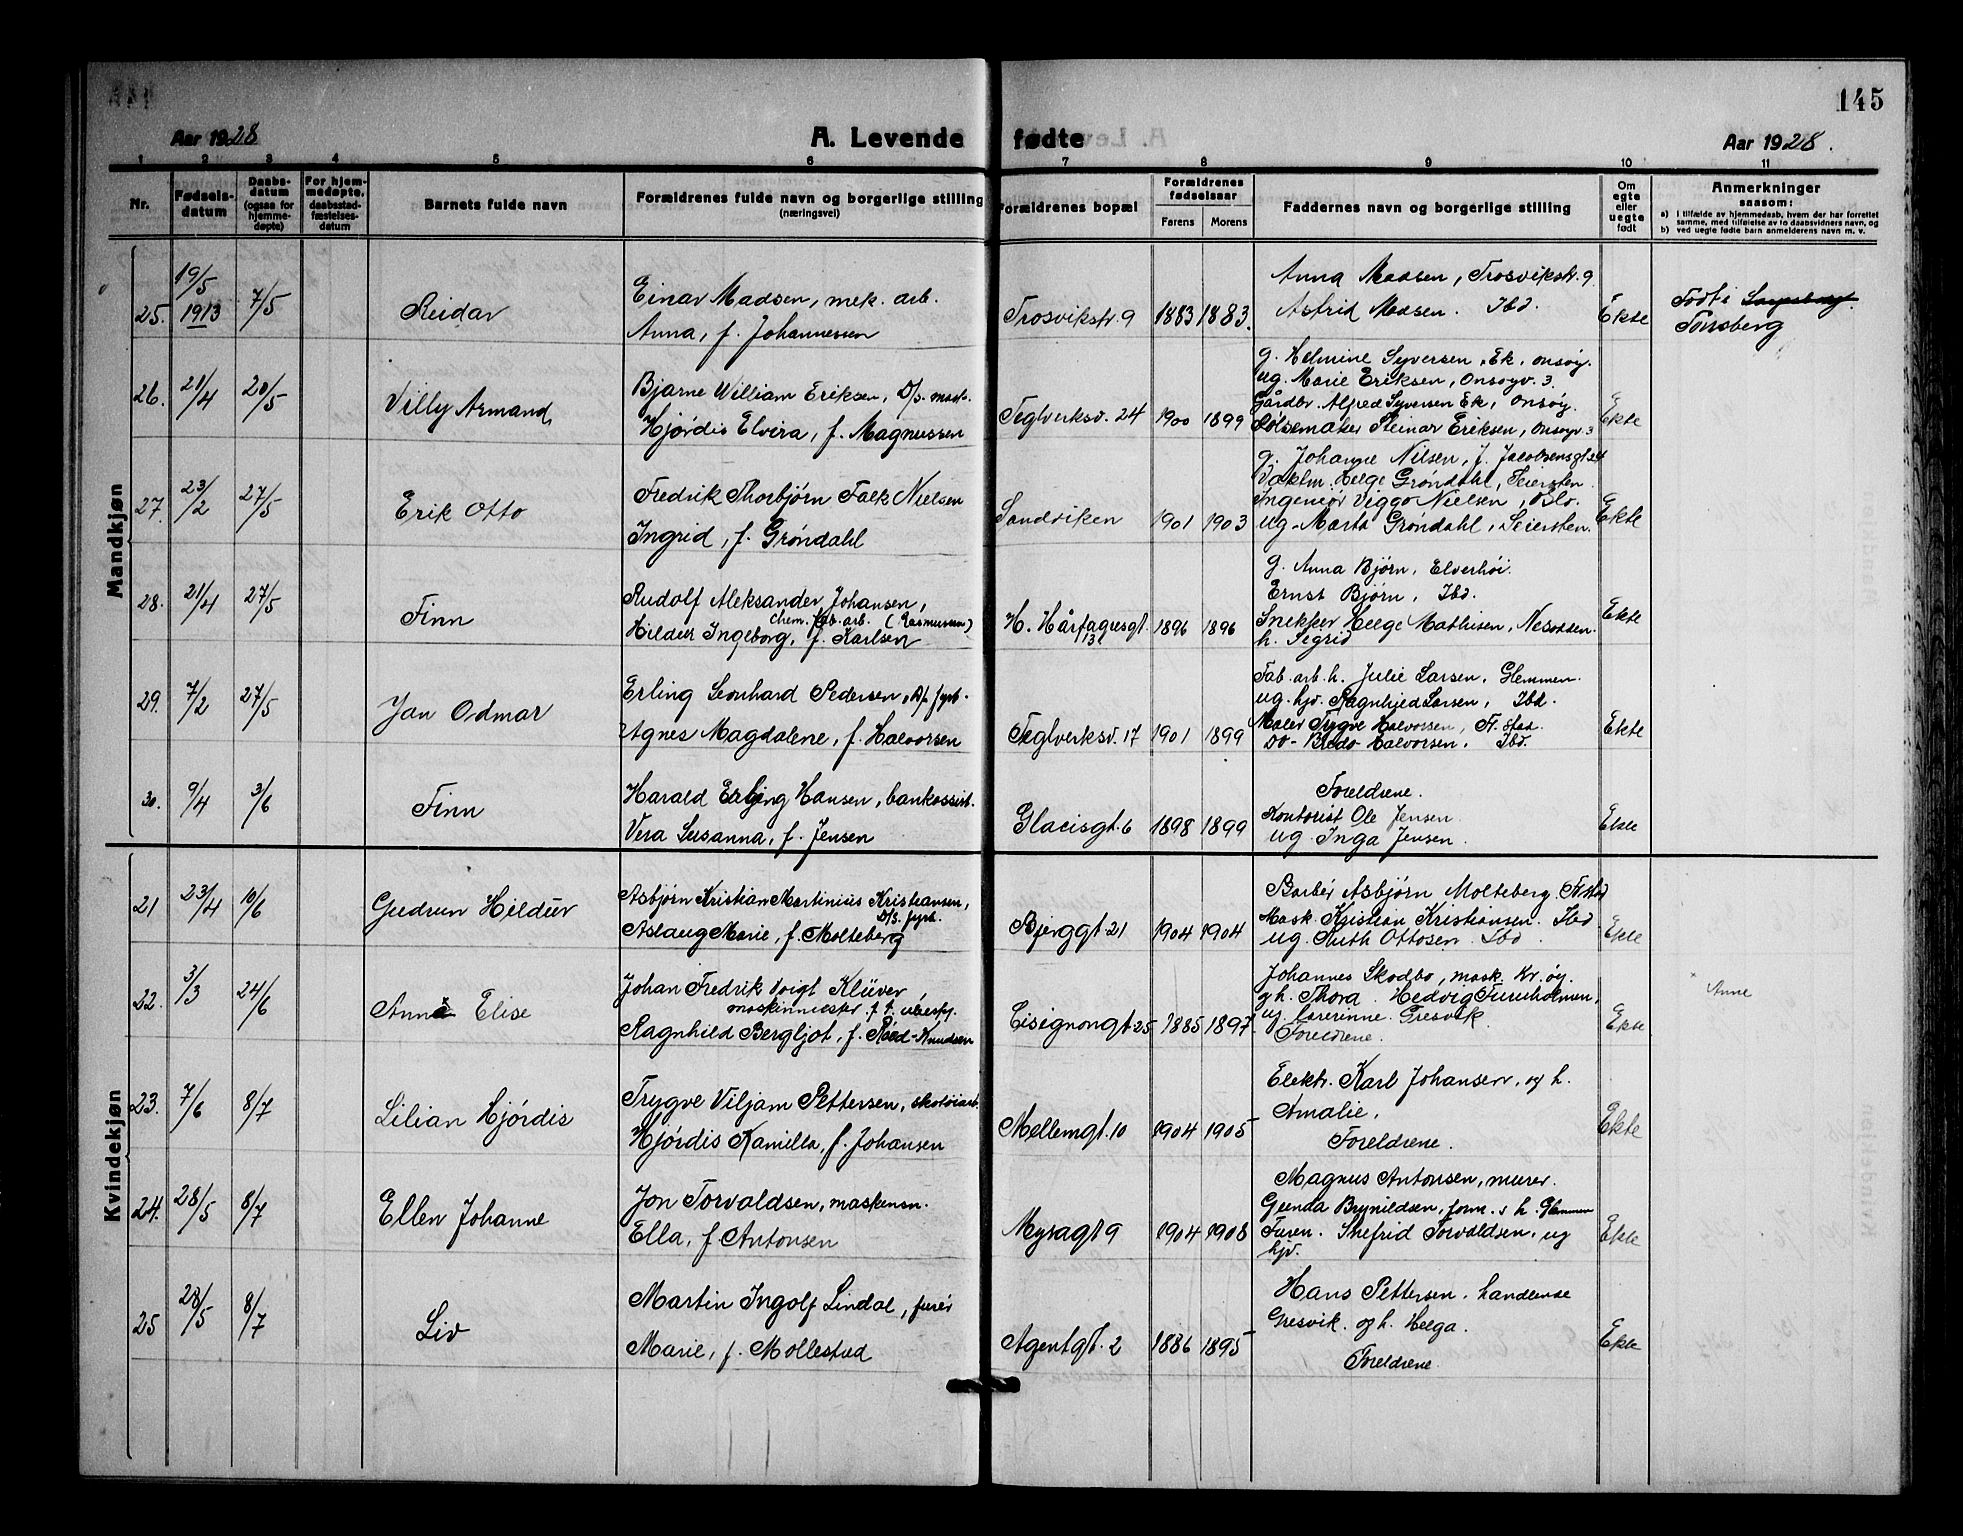 145
Aar 1928
A. Levende fødte
Aar 1928.
1 2 3 4 5 6 7 8 9 10 11
Nr.
Fødsels-
datum
Daabs-
datum
(ogsaa for
hjemme-
døpte)
For hjem-
medøpte,
daabsstad-
fæstelses-
datum
Barnets fulde navn
Forældrenes fulde navn og borgerlige stilling
(næringsvei)
Forældrenes bopæl
Forældrenes
fødselsaar
Farens Morens
Faddernes navn og borgerlige stilling
Om
egte
eller
uegte
født
Anmerkninger
saasom:
a) i tilfælde av hjemmedaab, hvem der har forrettet
samme, med tilføielse av to daabsvidners navn, og
b) ved uegte fødte barn anmelderens navn m. v.
Mandkjøn
25. 19/5 1913 7/5 Reidar
Einar Madsen, mek. arb.
Anna, f. Johannessen
Trosvikstr. 9 1883 1883.
Anna Madsen, Trosvikstr. 9
Astrid Madsen. Ibd.
Ekte
Født i
Tønsberg
26. 21/4 20/5 Villy Armand
Bjarne William Eriksen, D/s. mask.
Hjørdis Elvira, f. Magnussen
Teglverksv. 24 1900 1899
g. Helmine Syversen, Ek, Onsøy.
ug. Marie Eriksen, Onsøyv. 3.
Gårdbr. Alfred Syversen Ek, Onsøy.
Pølsemaker Steinar Eriksen, Onsøyv. 3
Ekte
27. 23/2 27/5 Erik Otto
Fredrik Thorbjørn Falk Nielsen
Ingrid, f. Grøndahl
Sandviken 1901 1903
g. Johanne Nilsen, J. Jacobsensgt. 24
Vaktm. Helge Grøndahl, Seiersten.
Ingeniør Viggo Nielsen, Oslo.
ug. Marta Grøndahl, Seiersten.
Ekte
28. 21/4 27/5 Finn
Rudolf Aleksander Johansen,
chem. fab. arb. (Rasmussen)
Hilder Ingeborg, f. Karlsen
H. Hårfagresgt. 13 1896 1896
g. Anna Bjørn, Elverhøi.
Ernst Bjørn, Ibd.
Snekker Helge Mathisen, Nesodden.
h. Sigrid
Ekte
29. 7/2 27/5 Jan Odmar
Erling Leonhard Pedersen, D/s. fyrb.
Agnes Magdalene, f. Halvorsen
Teglverksv. 17 1901 1899
Fab. arb. h. Julie Larsen, Glemmen.
ug. hjv. Ragnhild Larsen, Ibd.
Maler Trygve Halvorsen, Fr. stad.
Do- Bredo Halvorsen, Ibd.
Ekte
30. 9/4 3/6 Finn
Harald Erling Hansen, bankassist.
Vera Susanna, f. Jensen
Glacisgt. 6 1898 1899
Foreldrene.
Kontorist Ole Jensen
ug. Inga Jensen.
Ekte
Kvindekjøn
21 23/4 10/6 Gudrun Hildur
Asbjørn Kristian Martinius Kristiansen,
D/s. fyrb.
Aslaug Marie, f. Molteberg
Bjerggt. 21 1904 1904
Barbér Asbjørn Molteberg, Fr.stad
Mask. Kristian Kristiansen. Ibd
ug. Ruth Ottosen. Ibd.
Ekte
22. 3/3 24/6 Anna Elise
Johan Fredrik Voigt Klüver,
maskinmester
Ragnhild Bergljot, f. Rød-Knudsen
Cisignongt. 25 1885 1897.
Johannes Skodbo, mask. Kr. øy.
og h. Thora. Hedvig Furuholmen,
ug. lærerinne. Gresvik
Foreldrene.
Ekte
Anne
23. 7/6 8/7 Lilian Hjórdis
Trygve Viljam Pettersen, skotøiarb.
Hjórdis Kamilla, f. Johansen
Mellemgt. 10 1904 1905
Elektr. Karl Johansen, og h.
Amalie,
Foreldrene.
Ekte
24. 28/5 8/7 Ellen Johanne
Jon Torvaldsen, maskensn.
Ella, f Antonsen
Myragt 9 1904 1908
Magnus Antonsen, murer.
Gunda Brynildsen, form. s h. Glemmen
Furen. Shefrid Torvaldsen, ug
hjv.
Ekte
25 28/5 8/7 Liv
Martin Ingolf Lindal, furér
Marie, f. Mollestad
Agentgt. 2 1886 1895
Hans Pettersen, handlende
Gresvik. og h. Helga.
Foreldrene
Ekte